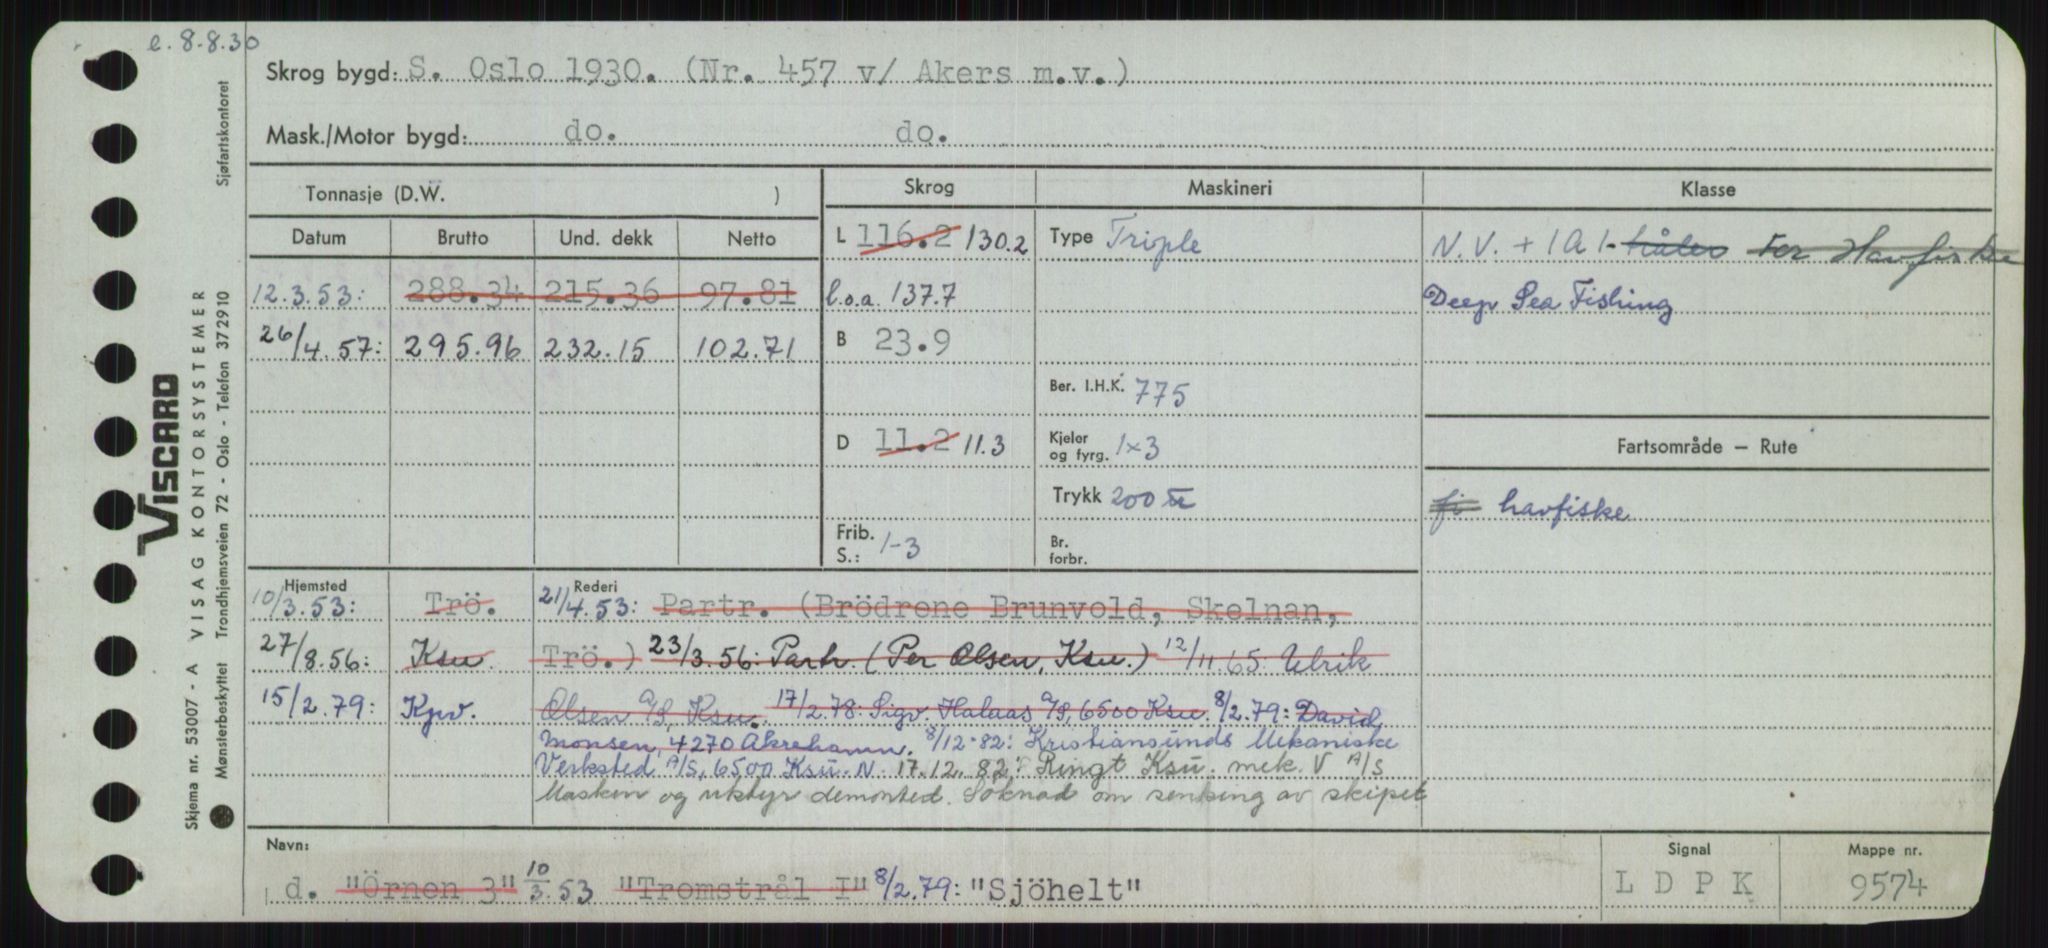 e. 8.8.30
Skrog bygd: S. Oslo 1930. (Nr. 457 v/ Akers m.v.)
Mask./Motor bygd: do. do.
Tonnasje (D.W. )
Skrog
Maskineri
Klasse
Datum Brutto Und. dekk Netto
L 116.2 130.2
Type Triple
N.V. + 1A1- For Havfiske
12.3.53: 288.34 215.36 97.81
l.o.a. 137.7
Deep Sea Fishing
26/4.57: 295.96 232.15 102.71
B 23.9
Ber. I.H.K. 775
D 11.2 11.3
Kjeler og fyrg. 1x3
Fartsområde — Rute
Trykk 200
fi havfiske
Frib. S.: 1-3
Br. forbr.
Hjemsted
Rederi
10/3.53: Trö. 21/4.53: Partr. (Brödrene Brunvold, Skelnan,
27/8.56: Ksu. Trö.) 23/3.56: Partr. (Per Olsen, Ksu.) 12/11.65: Ulrik
15/2.79: Kpv. Olsen A/S, Ksu. 17/2.78: Sigv. Halaas A/S, 6500 Ksu. 8/2.79: David
Monsen, 4270 Akrehamn. 8/12-82: Kristiansunds Mekaniske
Verksted A/S, 6500 Ksu. N. 17.12.82: Ringt Ksu. mek. V A/S
Maskin og utstyr demonted. Söknad om senking av skipet
Navn:
d. "Örnen 3" 10/3.53 "Tromstrål I" 8/2.79: "Sjöhelt"
Signal
L D P K
Mappe nr.
9574
Skjema nr. 53007 - A VISAG KONTORSYSTEMER
VISCARD
Mønsterbeskyttet Trondhjemsveien 72 - Oslo - Telefon 372910 Sjøfartskontoret